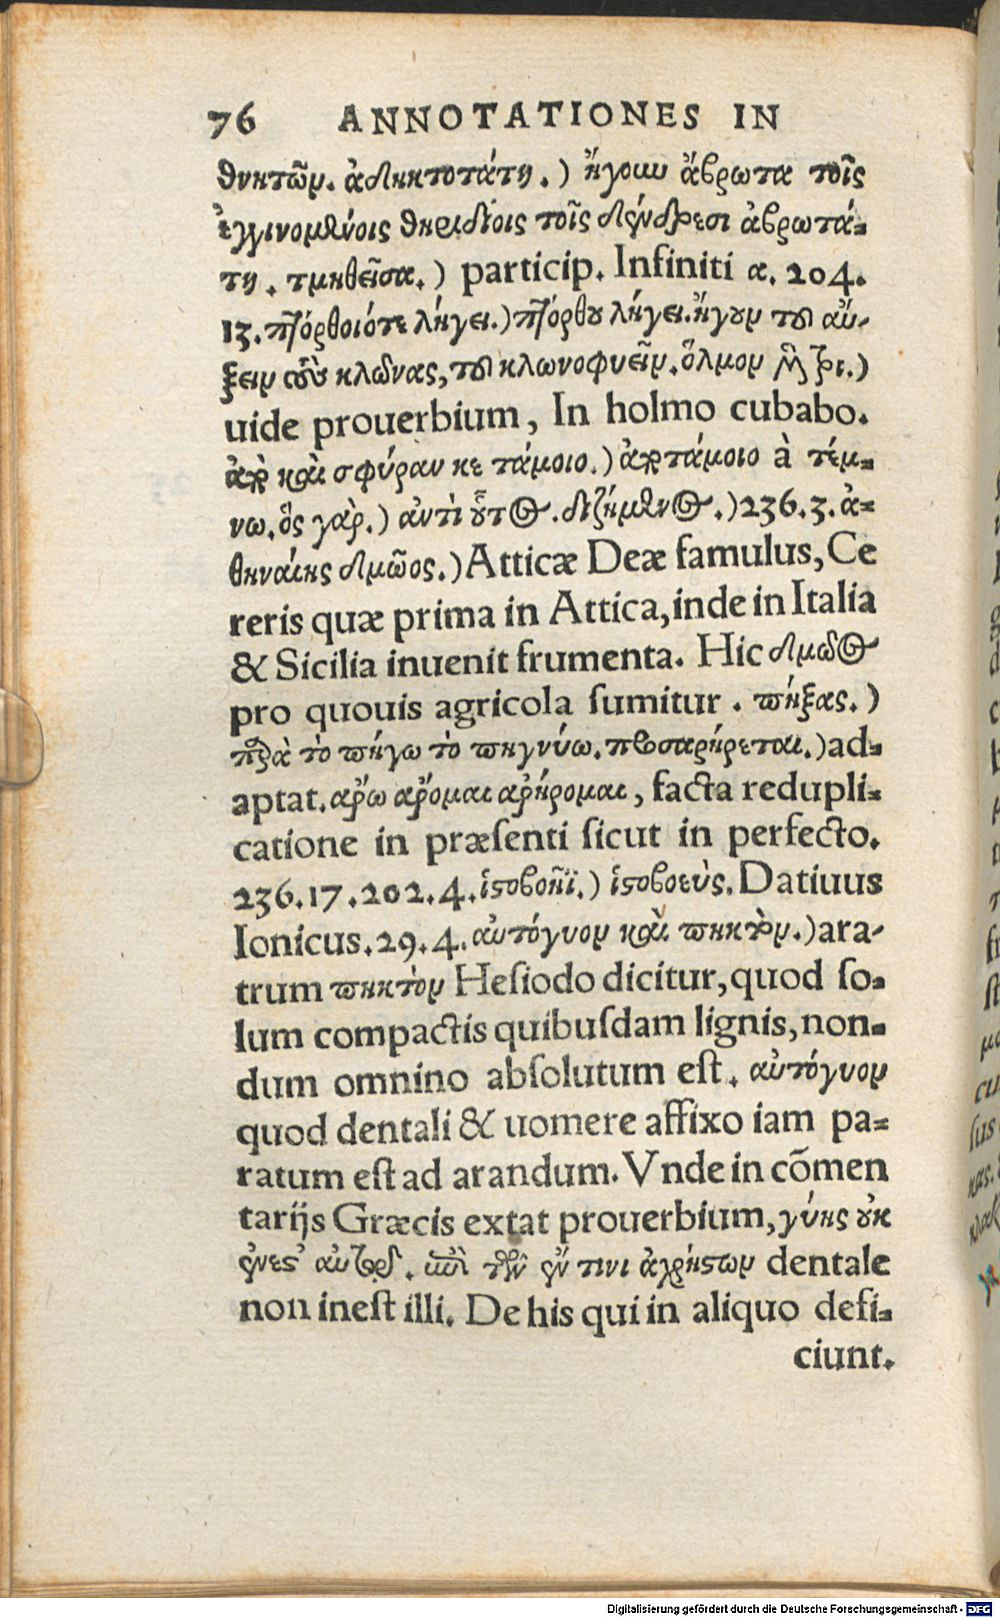 76 ANNOTATIONES IN
θνητῶν. ἀδηκτοτάτη.) ἤγουν ἄβρωτα τοῖς
ἐγγινομένοις θηριδίοις τοῖς δένδρεσι ἀβρωτά-
τη. τμηθεῖσα.) particip. Infiniti α. 204.
13. πτόρθοιό τε λήγει.) πτόρθου λήγει. ἤγουν τοῦ αὔ-
ξειν τοὺς κλῶνας, τοῦ κλωνοφυεῖν. ὅλμον μὲν τρι.)
uide prouerbium, In holmo cubabo.
καὶ σφύραν κε τάμοιο.) τάμοιο à τέμ-
νω. ὃς γὰρ.) ἀντὶ οὗτος. διζήμενος.) 236.3. ἀ-
θηναίης δμῶος.) Atticæ Deæ famulus, Ce
reris quæ prima in Attica, inde in Italia
& Sicilia inuenit frumenta. Hic δμωὸς
pro quouis agricola ſumitur. πήξας.)
παρὰ τὸ πήγω τὸ πηγνύω. προσαρήρεται.) ad-
aptat. ἄρω ἄρομαι ἀρήρομαι, facta redupli-
catione in præſenti ſicut in perfecto.
236.17.202.4. ἱστοβοῆϊ.) ἱστοβοεὺς. Datiuus
Ionicus. 29.4. αὐτόγυον καὶ πηκτὸν.) ara-
trum πηκτὸν Heſiodo dicitur, quod ſo-
lum compactis quibuſdam lignis, non-
dum omnino abſolutum eſt. αὐτόγυον
quod dentali & uomere affixo iam pa-
ratum eſt ad arandum. Vnde in cõmen
tarijs Græcis extat prouerbium, γύης οὐκ
ἔνεστ' αὐτῷ. ἐπὶ τῶν ἔν τινι ἀχρήστων dentale
non ineſt illi. De his qui in aliquo defi-
ciunt.
Digitalisierung gefördert durch die Deutsche Forschungsgemeinschaft - DFG